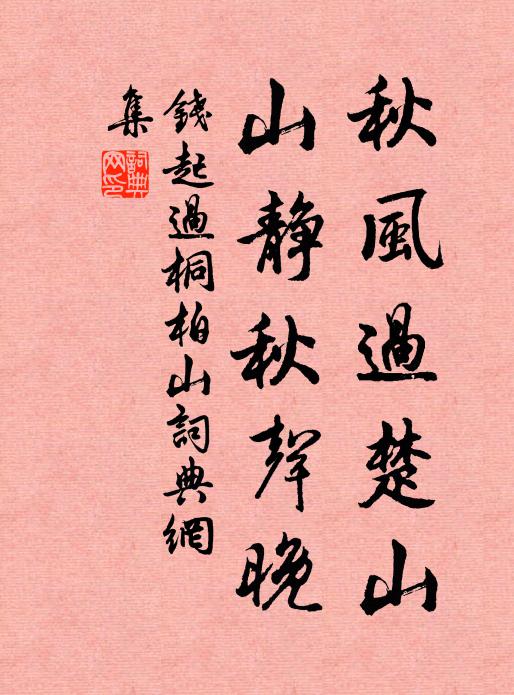 秋風過楚山
山靜秋聲晚
錢起過桐柏山詞典網
集
詞典网印